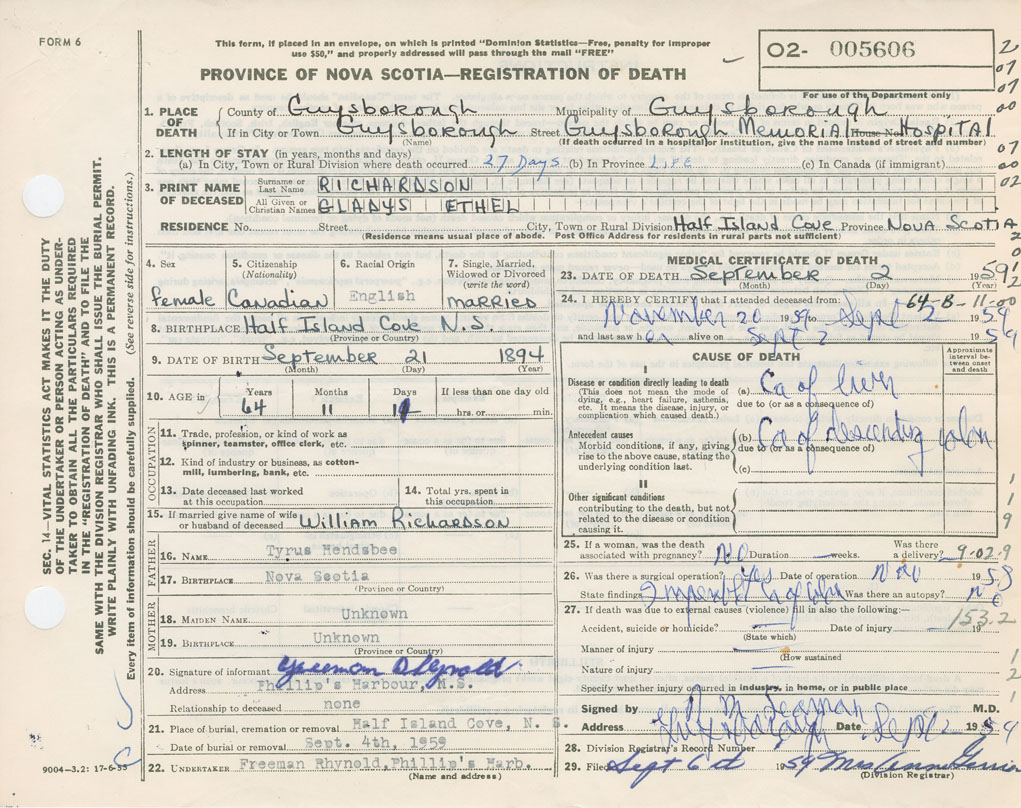 FORM 6
This form, if placed in an envelope, on which is printed "Dominion Statistics—Free, penalty for improper
use $50," and properly addressed will pass through the mail "FREE"
O2- 005606
PROVINCE OF NOVA SCOTIA—REGISTRATION OF DEATH
For use of the Department only
1. PLACE OF DEATH
County of Guysborough Municipality of Guysborough
If in City or Town Guysborough Street Guysborough Memorial House No. Hospital
(Name) (If death occurred in a hospital or institution, give the name instead of street and number)
2. LENGTH OF STAY (in years, months and days)
(a) In City, Town or Rural Division where death occurred 27 Days (b) In Province LIFE (c) In Canada (if immigrant)
3. PRINT NAME OF DECEASED
Surname or Last Name RICHARDSON
All Given or Christian Names GLADYS ETHEL
RESIDENCE No. Street City, Town or Rural Division Half Island Cove Province Nova Scotia
(Residence means usual place of abode. Post Office Address for residents in rural parts not sufficient)
4. Sex female
5. Citizenship (Nationality) Canadian
6. Racial Origin English
7. Single, Married, Widowed or Divorced (write the word) married
8. BIRTHPLACE Half Island Cove N.S.
(Province or Country)
9. DATE OF BIRTH September 21 1894
(Month) (Day) (Year)
10. AGE in Years Months Days If less than one day old
64 11 hrs. or min.
OCCUPATION
11. Trade, profession, or kind of work as
spinner, teamster, office clerk, etc.
12. Kind of industry or business, as cotton-
mill, lumbering, bank, etc.
13. Date deceased last worked
at this occupation
14. Total yrs. spent in
this occupation
15. If married give name of wife
or husband of deceased William Richardson
FATHER
16. NAME Tyrus Hendsbee
17. BIRTHPLACE Nova Scotia
(Province or Country)
MOTHER
18. MAIDEN NAME Unknown
19. BIRTHPLACE Unknown
(Province or Country)
20. Signature of informant
Address Phillip's Harbour, N.S.
Relationship to deceased none
21. Place of burial, cremation or removal Half Island Cove, N. S.
Date of burial or removal Sept. 4th, 1959
22. UNDERTAKER Freeman Rhynold, Phillip's Harb.
(Name and address)
MEDICAL CERTIFICATE OF DEATH
23. DATE OF DEATH September 2 1959
(Month) (Day)
64-B-11-00
24. I HEREBY CERTIFY that I attended deceased from:
November 20 1959 to Sept 2 1959
and last saw her alive on Sept 2 1959
CAUSE OF DEATH
Approximate interval between onset and death
I
Disease or condition directly leading to death
(This does not mean the mode of
dying, e.g., heart failure, asthenia,
etc. It means the disease, injury, or
complication which caused death.)
(a) Ca of liver
due to (or as a consequence of)
Antecedent causes
Morbid conditions, if any, giving
rise to the above cause, stating the
underlying condition last.
(b) Ca of descending colon
due to (or as a consequence of)
(c)
II
Other significant conditions
contributing to the death, but not
related to the disease or condition
causing it.
25. If a woman, was the death
associated with pregnancy? NO Duration weeks. Was there
a delivery? 9-02.9
26. Was there a surgical operation? Yes Date of operation Nov 1958
State findings Ca of colon Was there an autopsy? no
27. If death was due to external causes (violence) fill in also the following:— 153.2
Accident, suicide or homicide? Date of injury 19
(State which)
Manner of injury
(How sustained
Nature of injury
Specify whether injury occurred in industry, in home, or in public place
Signed by M.D.
Address Guysborough Date Sept 2 1959
28. Division Registrar's Record Number
29. Filed Sept 6 1959 Mrs Ann
(Division Registrar)
SEC. 14—VITAL STATISTICS ACT MAKES IT THE DUTY
OF THE UNDERTAKER OR PERSON ACTING AS UNDER-
TAKER TO OBTAIN ALL THE PARTICULARS REQUIRED
IN THE "REGISTRATION OF DEATH" AND TO FILE THE
SAME WITH THE DIVISION REGISTRAR WHO SHALL ISSUE THE BURIAL PERMIT.
WRITE PLAINLY WITH UNFADING INK. THIS IS A PERMANENT RECORD.
Every item of information should be carefully supplied. (See reverse side for instructions.)
9004-3.2: 17-6-55